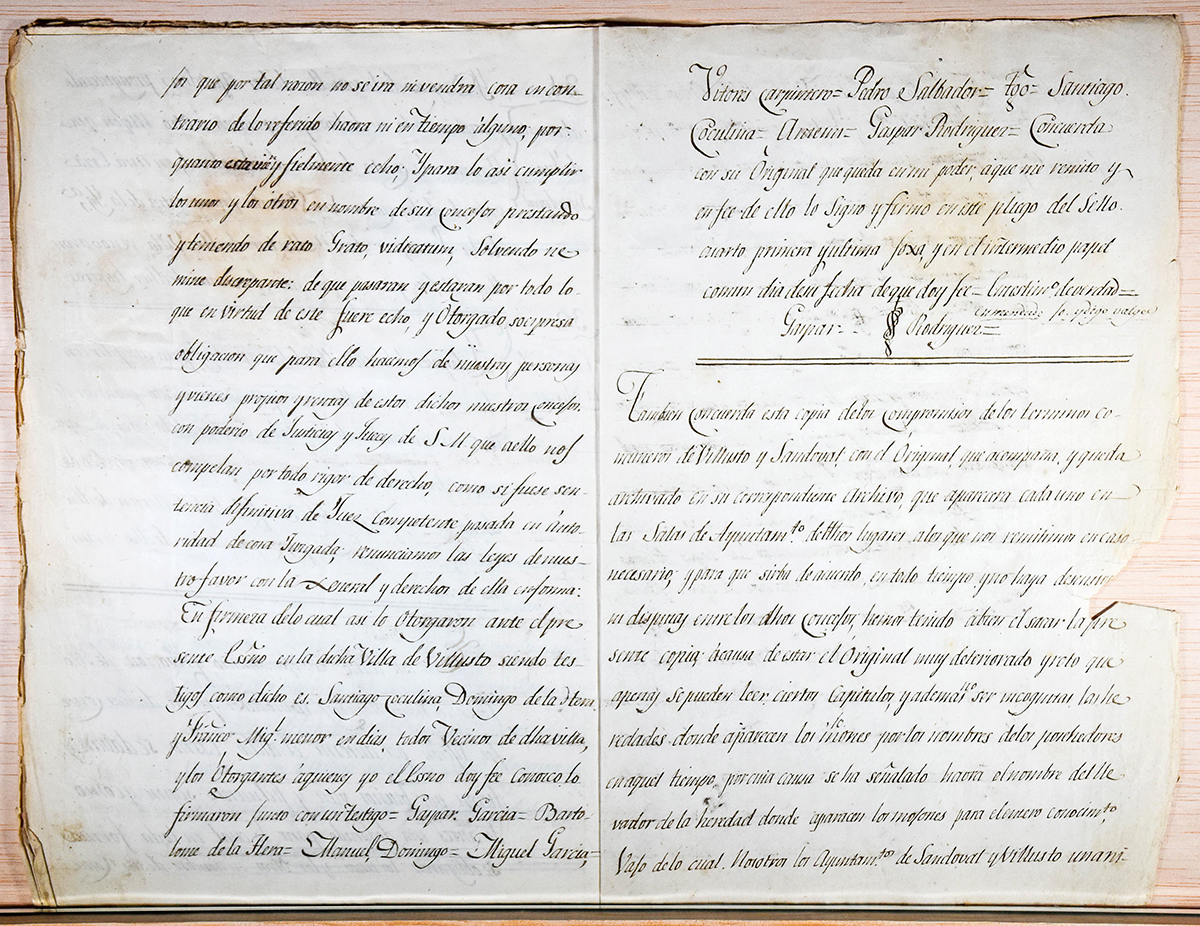 jos que por tal razon no se ira ni vendra cosa en con-
trario de lo referido haora ni en tiempo alguno, por-
quanto esta vien y fielmente echo; Y para lo asi cumplir
los unos y los otros en nombre de sus Concejos prestando
y temendo de rato Grato, vidicatum, Solvendo ne
mine discrepante: de que pasaran y estaran por todo lo
que en virtud de este fuere echo, y Otorgado so expresa
obligacion que para ello hacemos de nuestras personas
y vienes propios y rentas de estos dichos nuestros Concejos
con poderio de Justicias y Jueces de S. M que a ello nos
compelan por todo rigor de derecho, como si fuese sen-
tencia difinitiva de Juez Competente pasada en Auto-
ridad de cosa Juzgada; renunciamos las leyes de nues-
tro favor con la General y derechos de ella en forma:
En firmeza de lo cual asi lo Otorgaron ante el pre
sente Essno en la dicha Villa de Villusto siendo tes-
tigos como dicho es. Santiago Coculina, Domingo de la Hera
y Franco Migl. menor en dias, todos Vecinos de dha villa,
y los Otorgantes aquienes yo el Essno doy fee Conozco lo
firmaron Junto con un testigo= Gaspar Garcia= Barto
lome de la Hera= Manuel Domingo= Miguel Garcia=
Vitores Carpintero= Pedro Salbador= tgo= Santiago
Coculina= Antemi= Gaspar Rodriguez= Concuerda
con su Original que queda en mi poder, a que me remito y
en fee de ello lo Signo y firmo en este pliego del Sello
cuarto primera y ultima foxa, y en el intermedio papel
comun dia de su fecha de que doy fee= En testimo. de verdad=
enmendado fo. y digo valga
Gaspar Rodriguez=
Tambien Concuerda esta copia de los Compromisos de los terminos co-
muneros de Villusto y Sandoval, con el Original, que acompaña, y queda
archivado en su correspondiente Archivo, que aparecera cada uno en
las Salas de Ayuntamto de dhos lugares, a los que nos remitimos en caso
necesario, y para que sirba de aumento, en todo tiempo y no haya
ni disputas entre los dhos Concejos, hemos tenido a bien el sacar la pre
sente copia; a causa de estar el Original muy deteriorado y roto que
apenas se pueden leer ciertos Capitulos, y ademas de ser incognitas las he
redades donde aparecen los mojones por los nombres de los poseedores
en aquel tiempo, por cuia causa se ha señalado haora el nombre del lle
vador de la heredad donde aparacen los mojones para el mero conocimto
Vajo de lo cual. Nosotros los Ayuntamtos de Sandoval y Villusto unani-